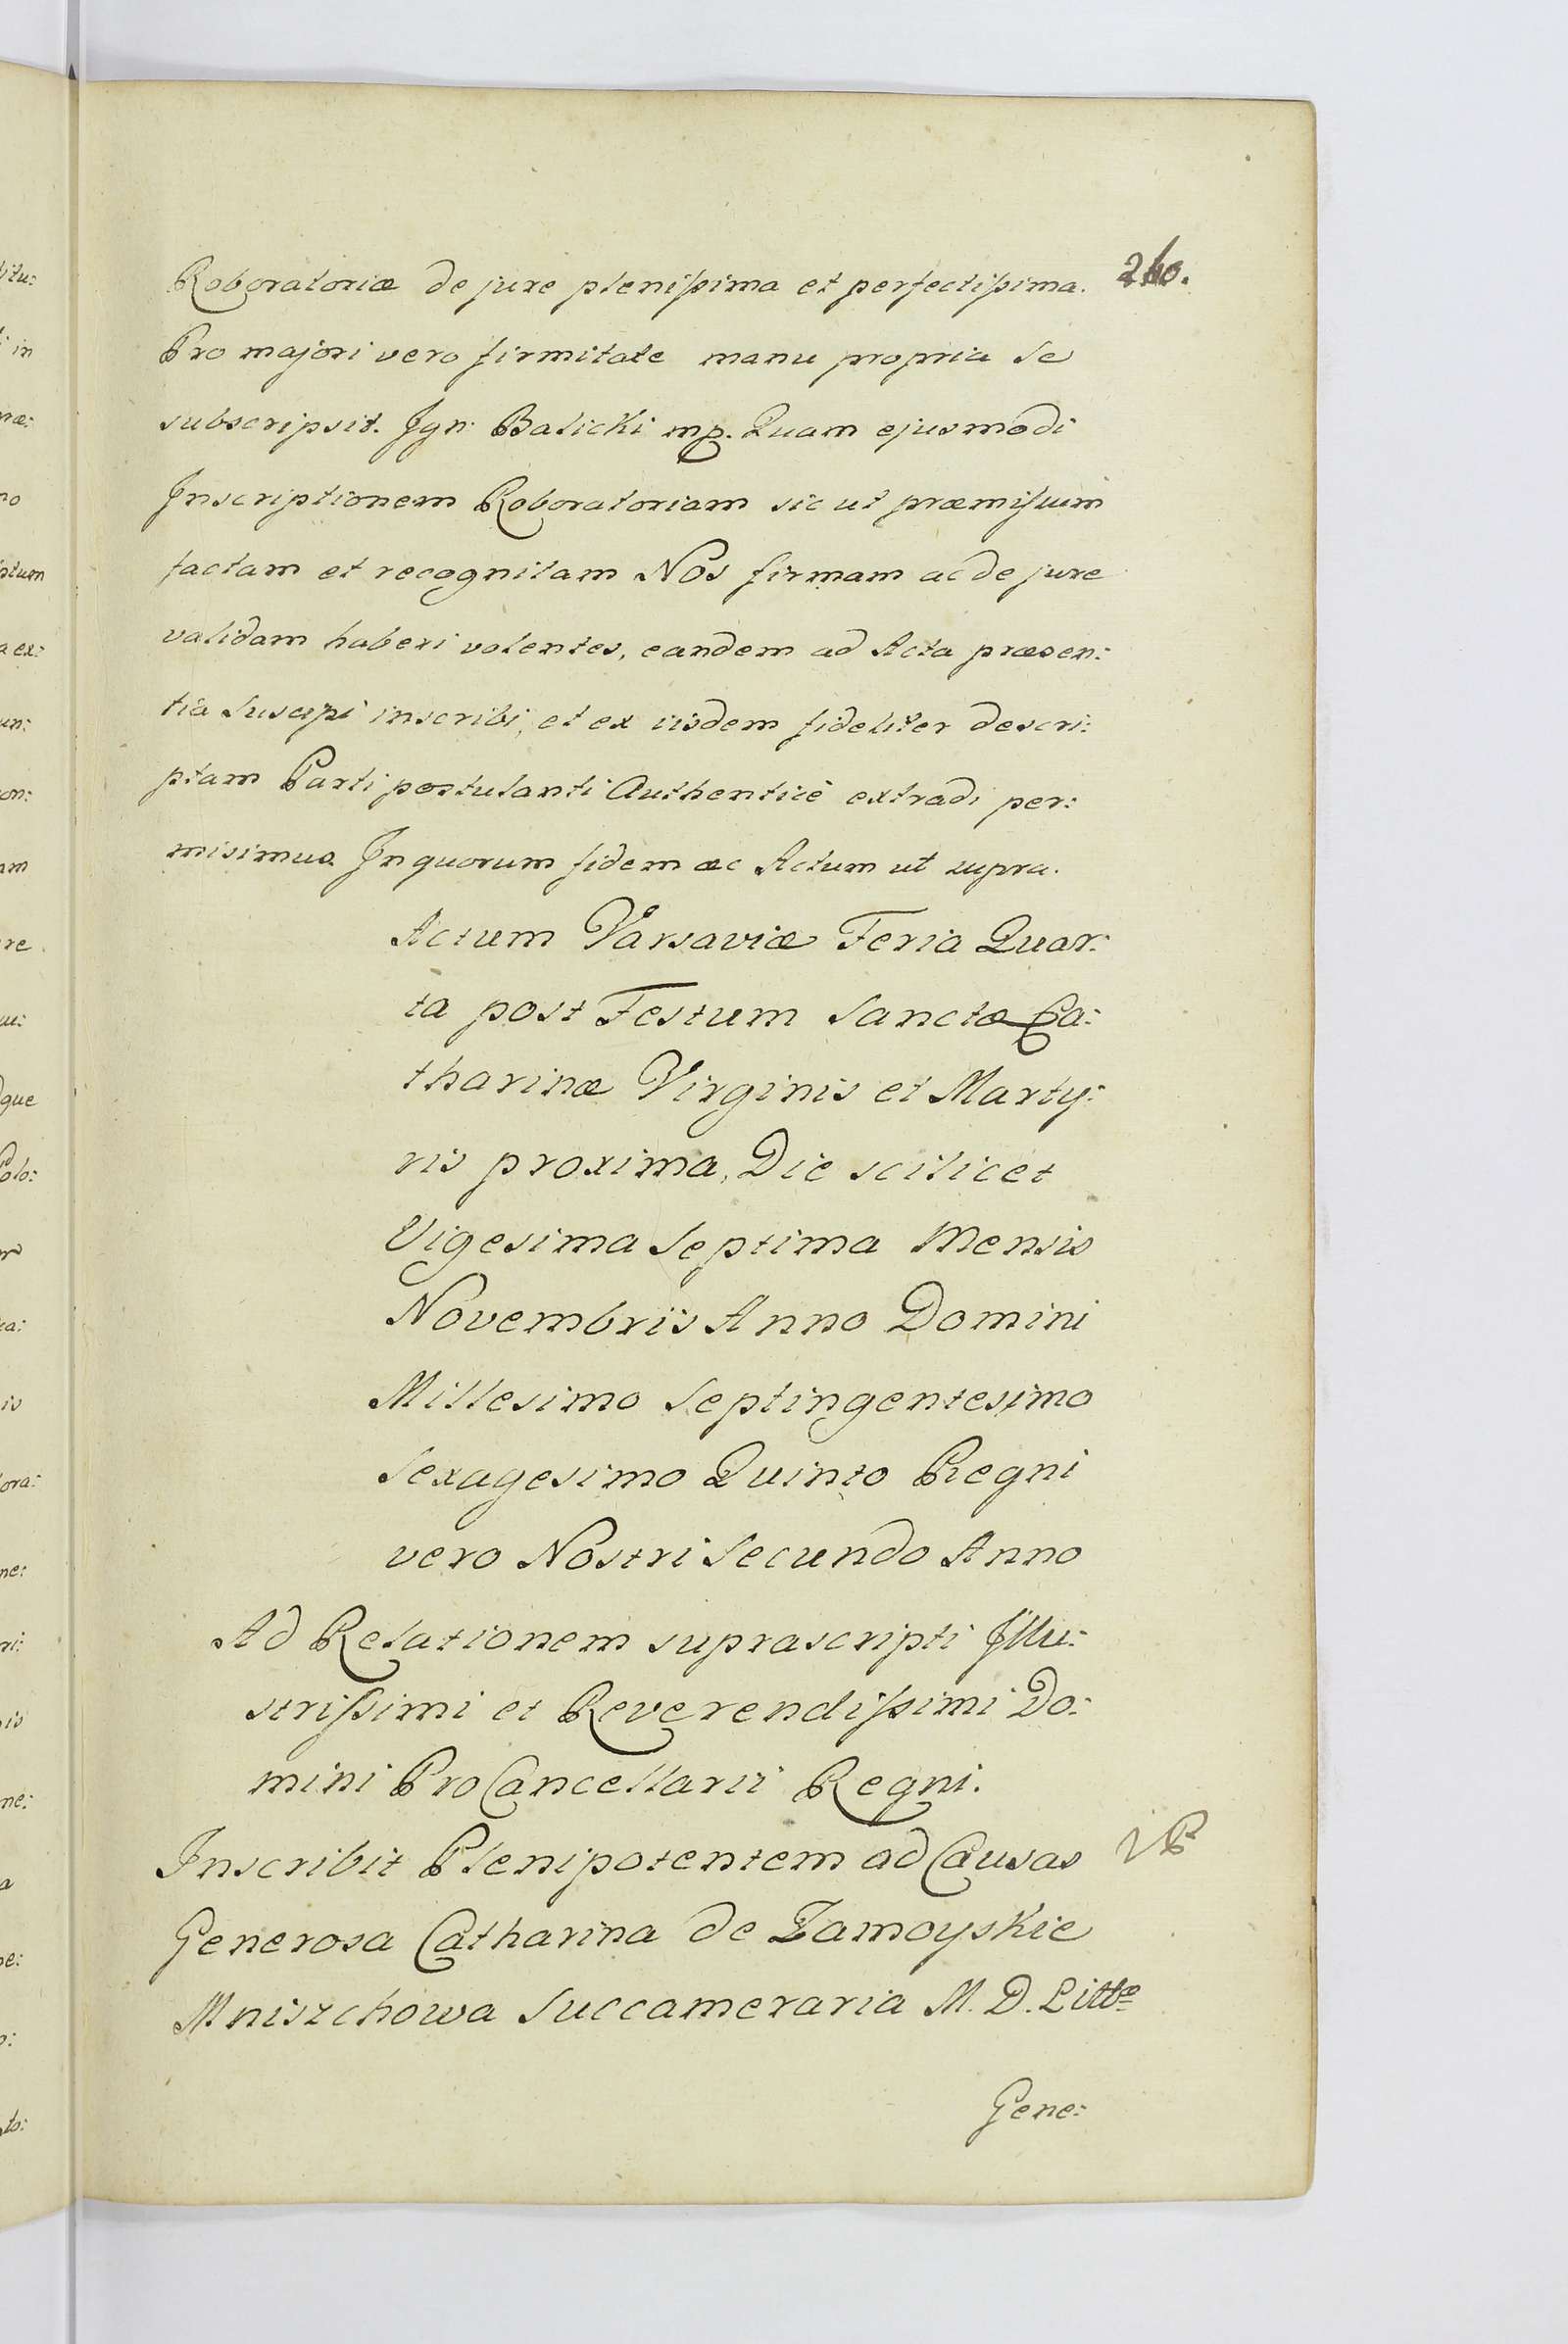 Roboratoriæ de jure plenissima et perfectissima. 260.
Pro majori vero firmitate manu propria se
subscripsit. Jgn: Balicki mp. Quam ejusmodi
Jnscriptionem Roboratoriam sic ut præmissum
factam et recognitam Nos firmam ac de jure
validam haberi volentes, eandem ad Acta præsen:
tia suscipi inscribi, et ex iisdem fideliter descri:
ptam Parti postulanti Authenticè extradi per:
misimus. Jn quorum fidem ac Actum ut supra.
Actum Varsaviæ Feria Quar:
ta post Festum Sanctæ Ca:
tharinæ Virginis et Marty:
ris proxima, Die scilicet
Vigesima Septima Mensis
Novembris Anno Domini
Millesimo Septingentesimo
Sexagesimo Quinto Regni
vero Nostri Secundo Anno
Ad Relationem suprascripti Jllu:
strissimi et Reverendissimi Do:
mini ProCancellarii Regni.
Jnscribit Plenipotentem ad Causas
Generosa Catharina de Zamoyskie
Mniszchowa Succameraria M. D. Littæ
Gene:
itu:
i in
næ:
no
ptum
a ex:
un:
on:
am
re
que
Polo:
is
ora:
ne:
ri:
is
ne:
a
to: